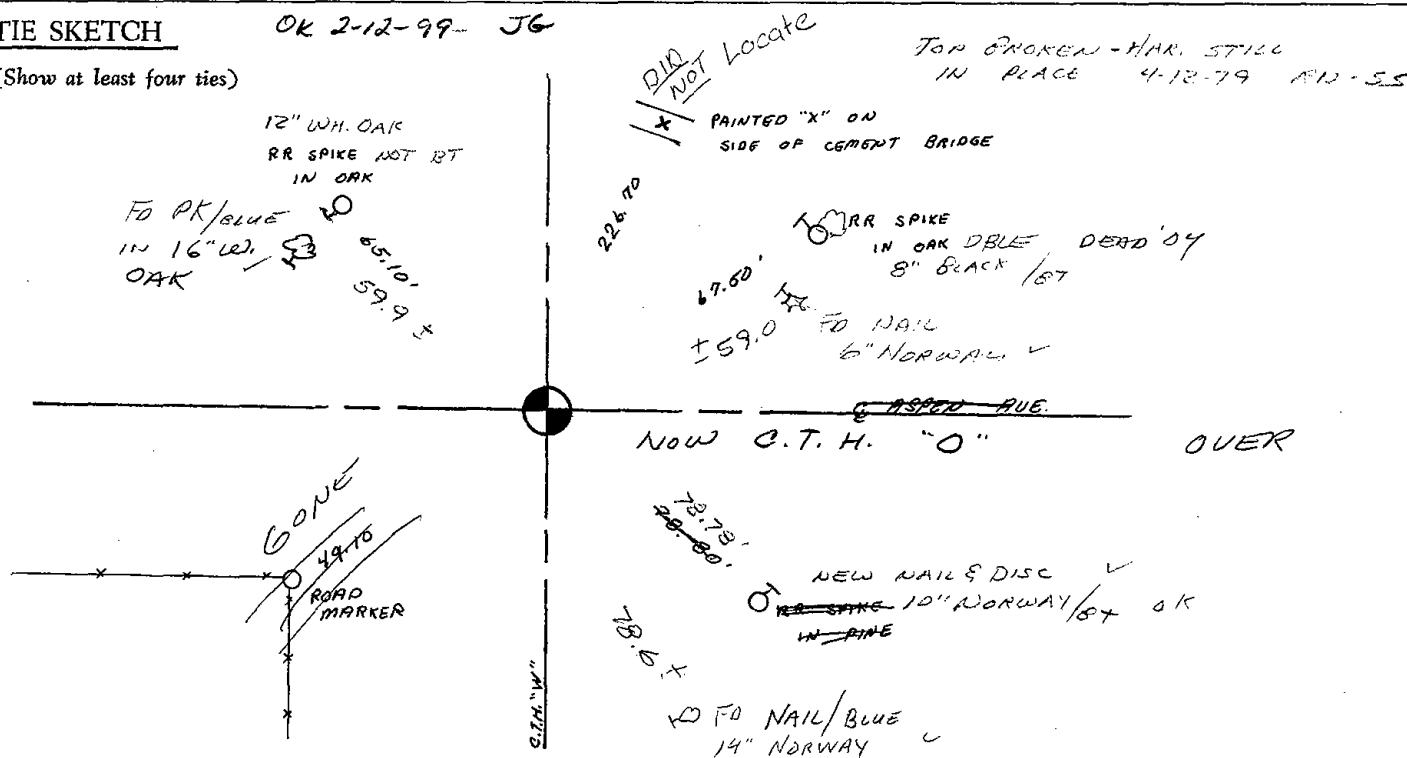 TIE SKETCH
OK 2-12-99- JG
(Show at least four ties)
DID
NOT Locate
TOP BROKEN - HAR. STILL
IN PLACE 4-12-79
X PAINTED "X" ON
SIDE OF CEMENT BRIDGE
12" WH. OAK
RR SPIKE NOT BT
IN OAK
FD PK/BLUE
IN 16" W.
OAK
65.10'
59.9 ±
226.70
RR SPIKE
IN OAK DBLE DEAD '04
8" BLACK /BT
67.60'
±59.0
FD NAIL
6" NORWAY ✓
℄ ASPEN AVE.
NOW C.T.H. "O" OVER
GONE
49.10
ROAD
MARKER
78.78'
78.80'
NEW NAIL & DISC ✓
RR SPIKE 10" NORWAY/BT OK
IN PINE
78.6 ±
C.T.H. "W"
FD NAIL/BLUE
14" NORWAY ✓